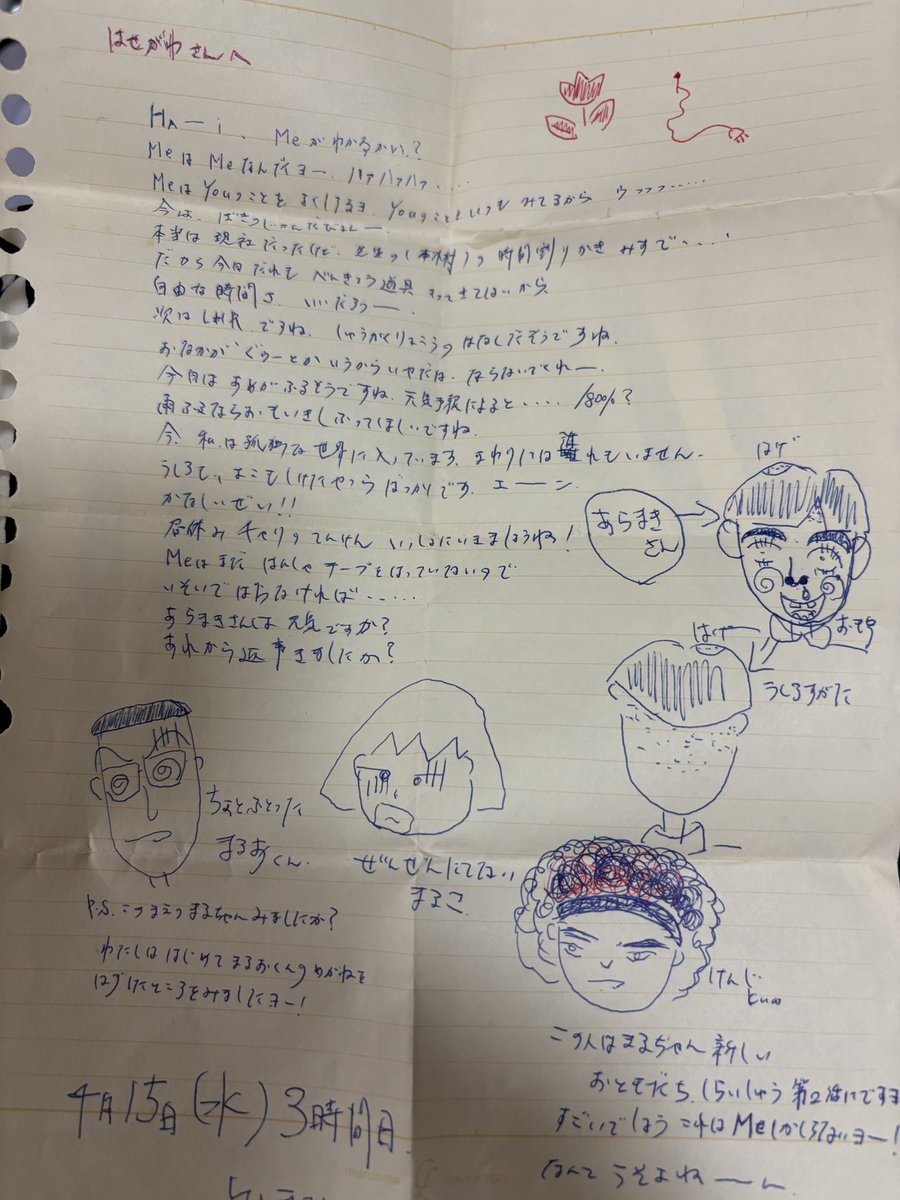 はせがわさんへ
Ha―i、Meがわかるかい?
MeはMeなんだヨー、ハァハァハァ‥‥
MeはYouのことをよくしってるヨ、Youのこといつもみてるから ウっフっフ‥‥
今は、
本当は現社だったけど、先生の(木村)の時間割りかきみすで‥‥
だから今日だれもべんきょう道具もってきてないから
自由な時間さ、いいだろうー、
次は ですね、しゅうがくりょこうのはなしだそうですね、
おなかがぐぅーとかいうからいやだな、ならないでくれー、
今日はあめがふるそうですね、天気予報によると‥‥
雨ふるならおもいきしふってほしいですね、
今、私は孤独な世界に入っています、まわりには誰れもいません、
うしろも、よこもしけたやつらばっかりです、エ――ン、
かなしいぜい!!
昼休みチャリのてんけん いっしょにいきましょうね!
Meはまだはんしゃテープをはっていないので
いそいではらなければ‥‥
あらまきさんは元気ですか?
あれから返事きましたか?
はげ
あらまきさん
はげ
うしろすがた
ちょとふとった
まるおくん、
ぜんぜんにてない
まるこ
P.S. このまえのまるちゃんみましたか?
わたしははじめてまるおくんのめがねを
はずしたところをみましたヨー!
けんじ
kun
この人はまるちゃん新しい
おともだち、らいしゅう第2話にでますヨ
すごいでしょう これはMeしかしらないヨー!
なんてうそよねーん
4月15日(水)3時間目